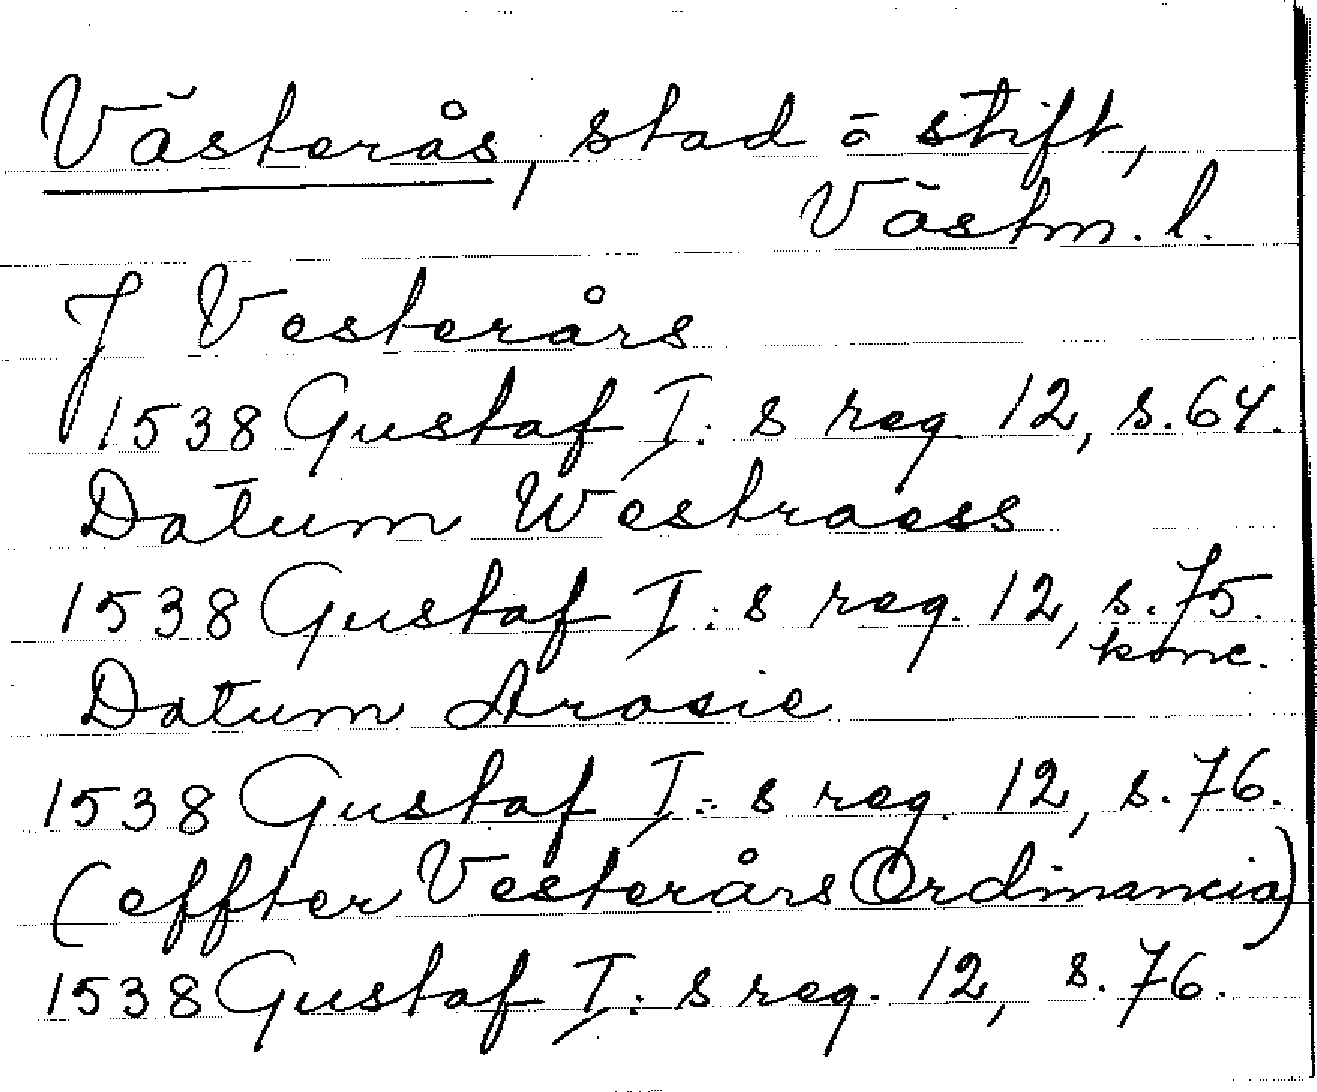 Västerås, stad o stift,
Västm. l.
J Vesterårs
1538 Gustaf I:s reg. 12, s. 64.
Datum Westraess
1538 Gustaf I:s reg. 12, s. 75.
konc.
Datum Arosie
1538 Gustaf I:s reg. 12, s. 76.
(effter Vesterårs Ordinancia)
1538 Gustaf I:s reg. 12, s. 76.